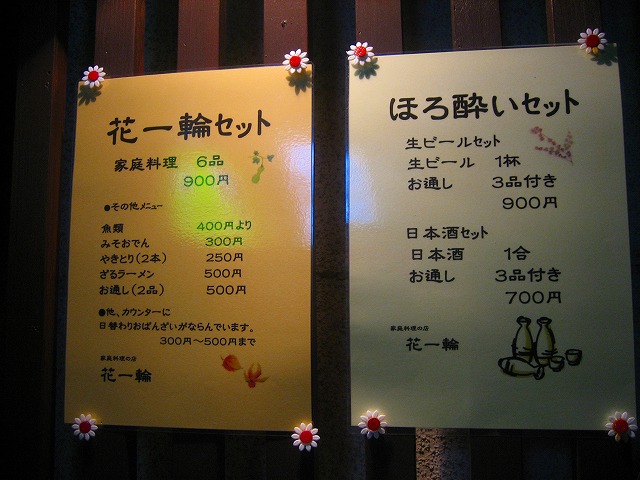 花一輪セット
家庭料理 6品
900円
●その他メニュー
魚類 400円より
みそおでん 300円
やきとり(2本) 250円
ざるラーメン 500円
お通し(2品) 500円
●他、カウンターに
日替わりおばんざいがならんでいます。
300円〜500円まで
家庭料理の店
花一輪
ほろ酔いセット
生ビールセット
生ビール 1杯
お通し 3品付き
900円
日本酒セット
日本酒 1合
お通し 3品付き
700円
家庭料理の店
花一輪